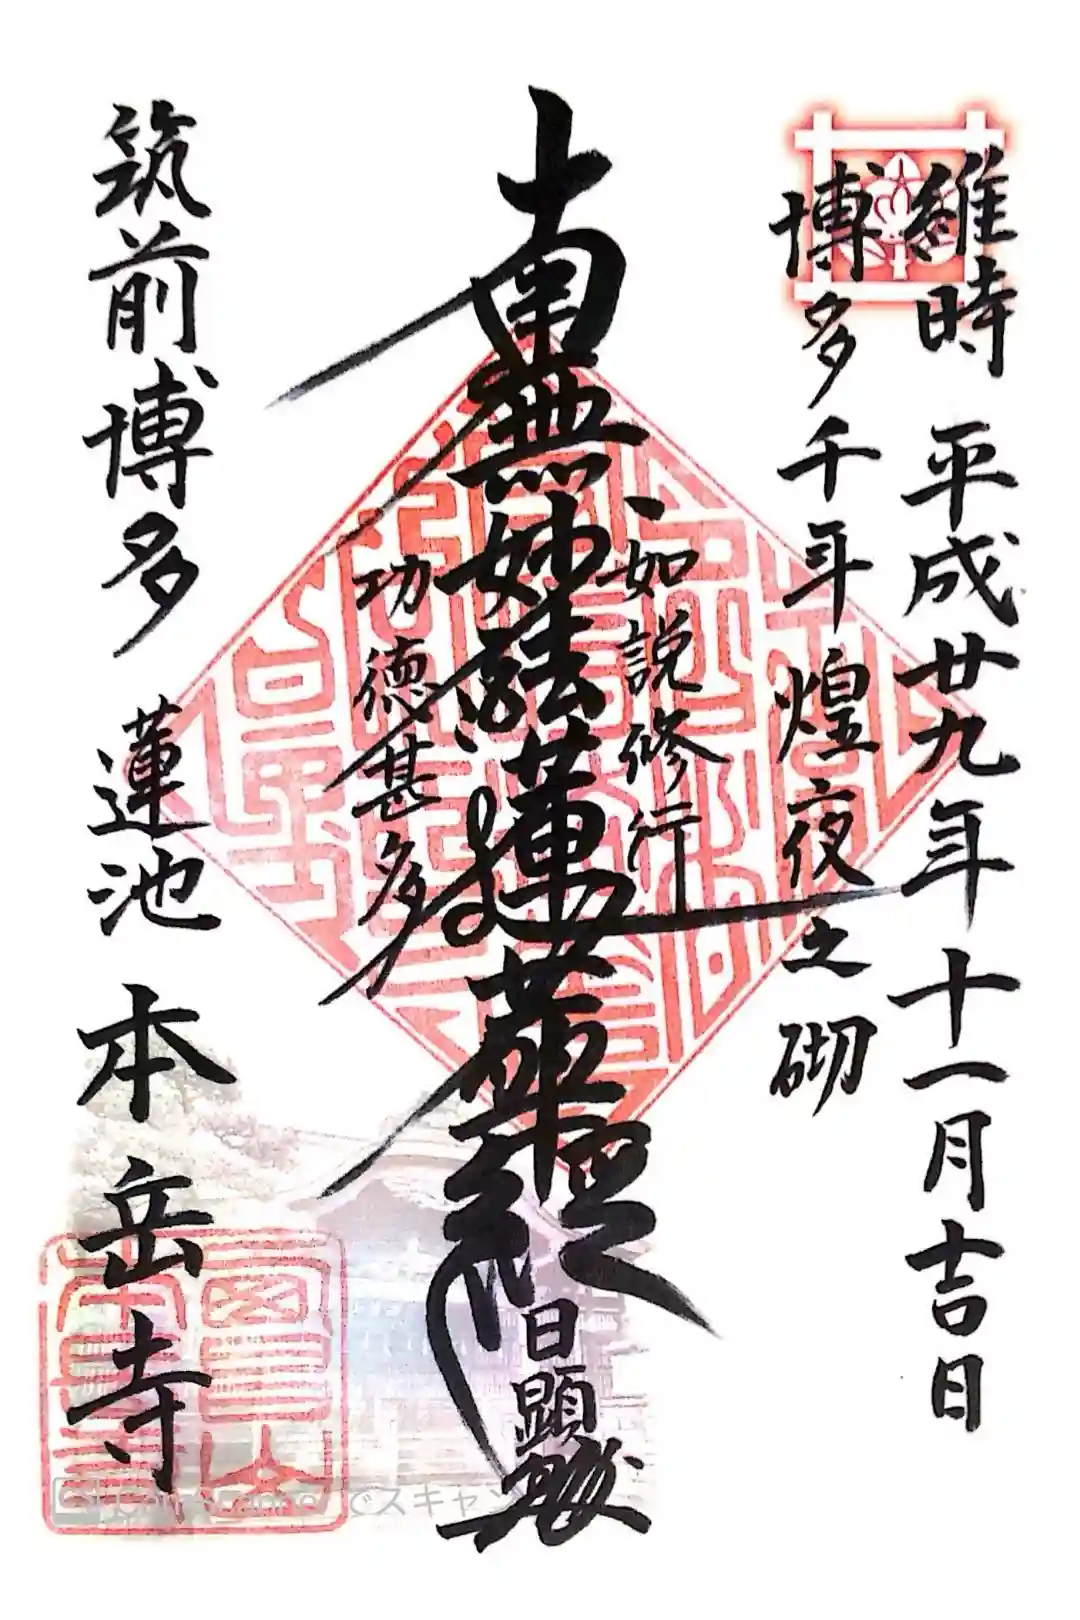 維時 平成廿九年十一月吉日
博多千年煌夜之砌
如説修行
南無妙法蓮華経
功徳甚多
日顕
筑前博多 蓮池 本岳寺
でスキャン